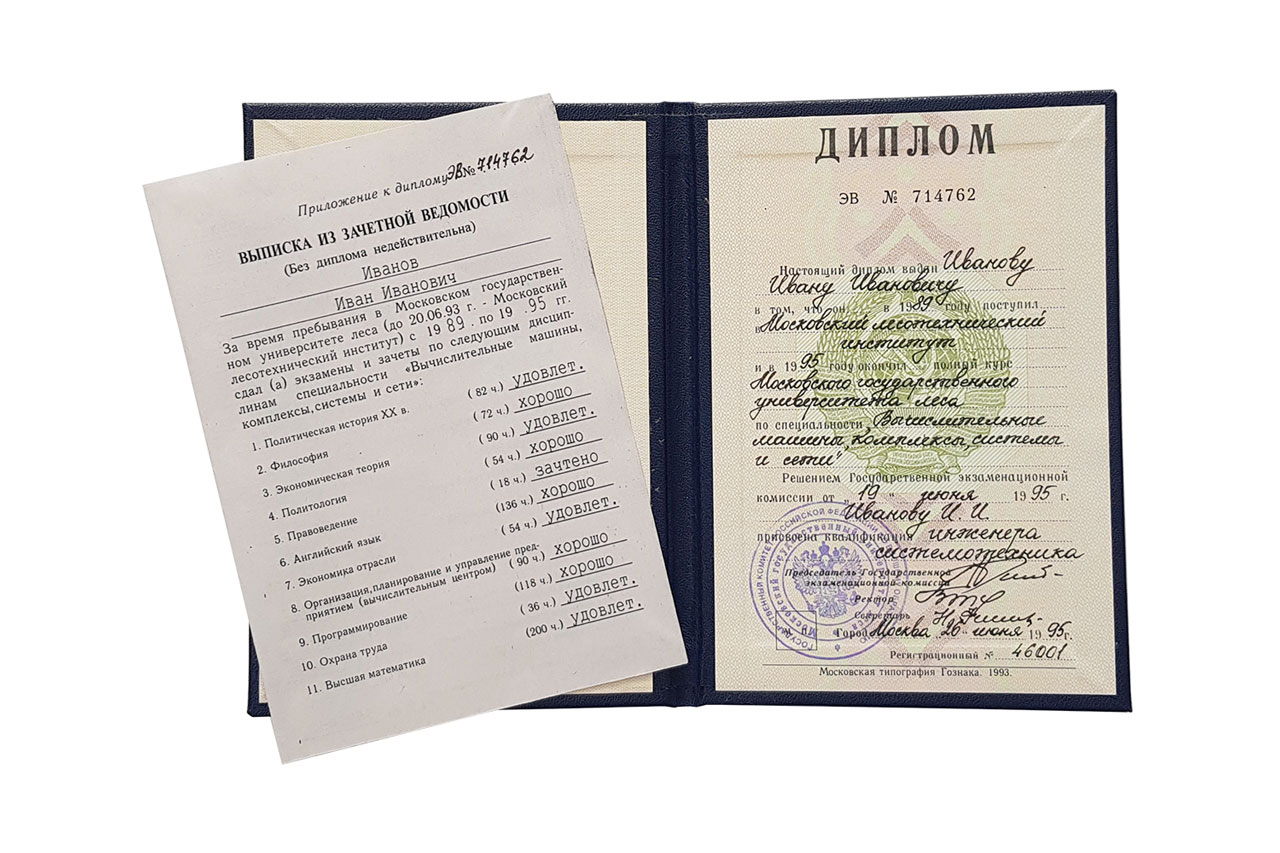 Приложение к диплому ЭВ № 714762
ВЫПИСКА ИЗ ЗАЧЕТНОЙ ВЕДОМОСТИ
(Без диплома недействительна)
Иванов
Иван Иванович
За время пребывания в Московском государствен-
ном университете леса (до 20.06.93 г. - Московский
лесотехнический институт) с 1989 . по 19 .95 гг.
сдал (а) экзамены и зачеты по следующим дисцип-
линам специальности «Вычислительные машины,
комплексы, системы и сети»:
1. Политическая история XX в. ( 82 ч.) удовлет.
2. Философия ( 72 ч.) хорошо
3. Экономическая теория ( 90 ч.) удовлет.
4. Политология ( 54 ч.) хорошо
5. Правоведение ( 18 ч.) зачтено
6. Английский язык (136 ч.) хорошо
7. Экономика отрасли ( 54 ч.) удовлет.
8. Организация, планирование и управление пред-
приятием (вычислительным центром) ( 90 ч.) хорошо
9. Программирование (118 ч.) хорошо
10. Охрана труда ( 36 ч.) удовлет.
11. Высшая математика (200 ч.) удовлет.
ДИПЛОМ
ЭВ № 714762
Настоящий диплом выдан Иванову
Ивану Ивановичу
в том, что он в 1989 году поступил
в Московский лесотехнический
институт
и в 1995 году окончил полный курс
Московского государственного
университета леса
по специальности „Вычислительные
машины, комплексы, системы
и сети"
Решением Государственной экзаменационной
комиссии от "19" июня 1995 г.
Иванову И. И.
присвоена квалификация инженера
системотехника
Председатель Государственной
экзаменационной комиссии
Ректор
Секретарь
Город Москва 26 июня 1995г.
Регистрационный № 46001
Московская типография Гознака. 1993.